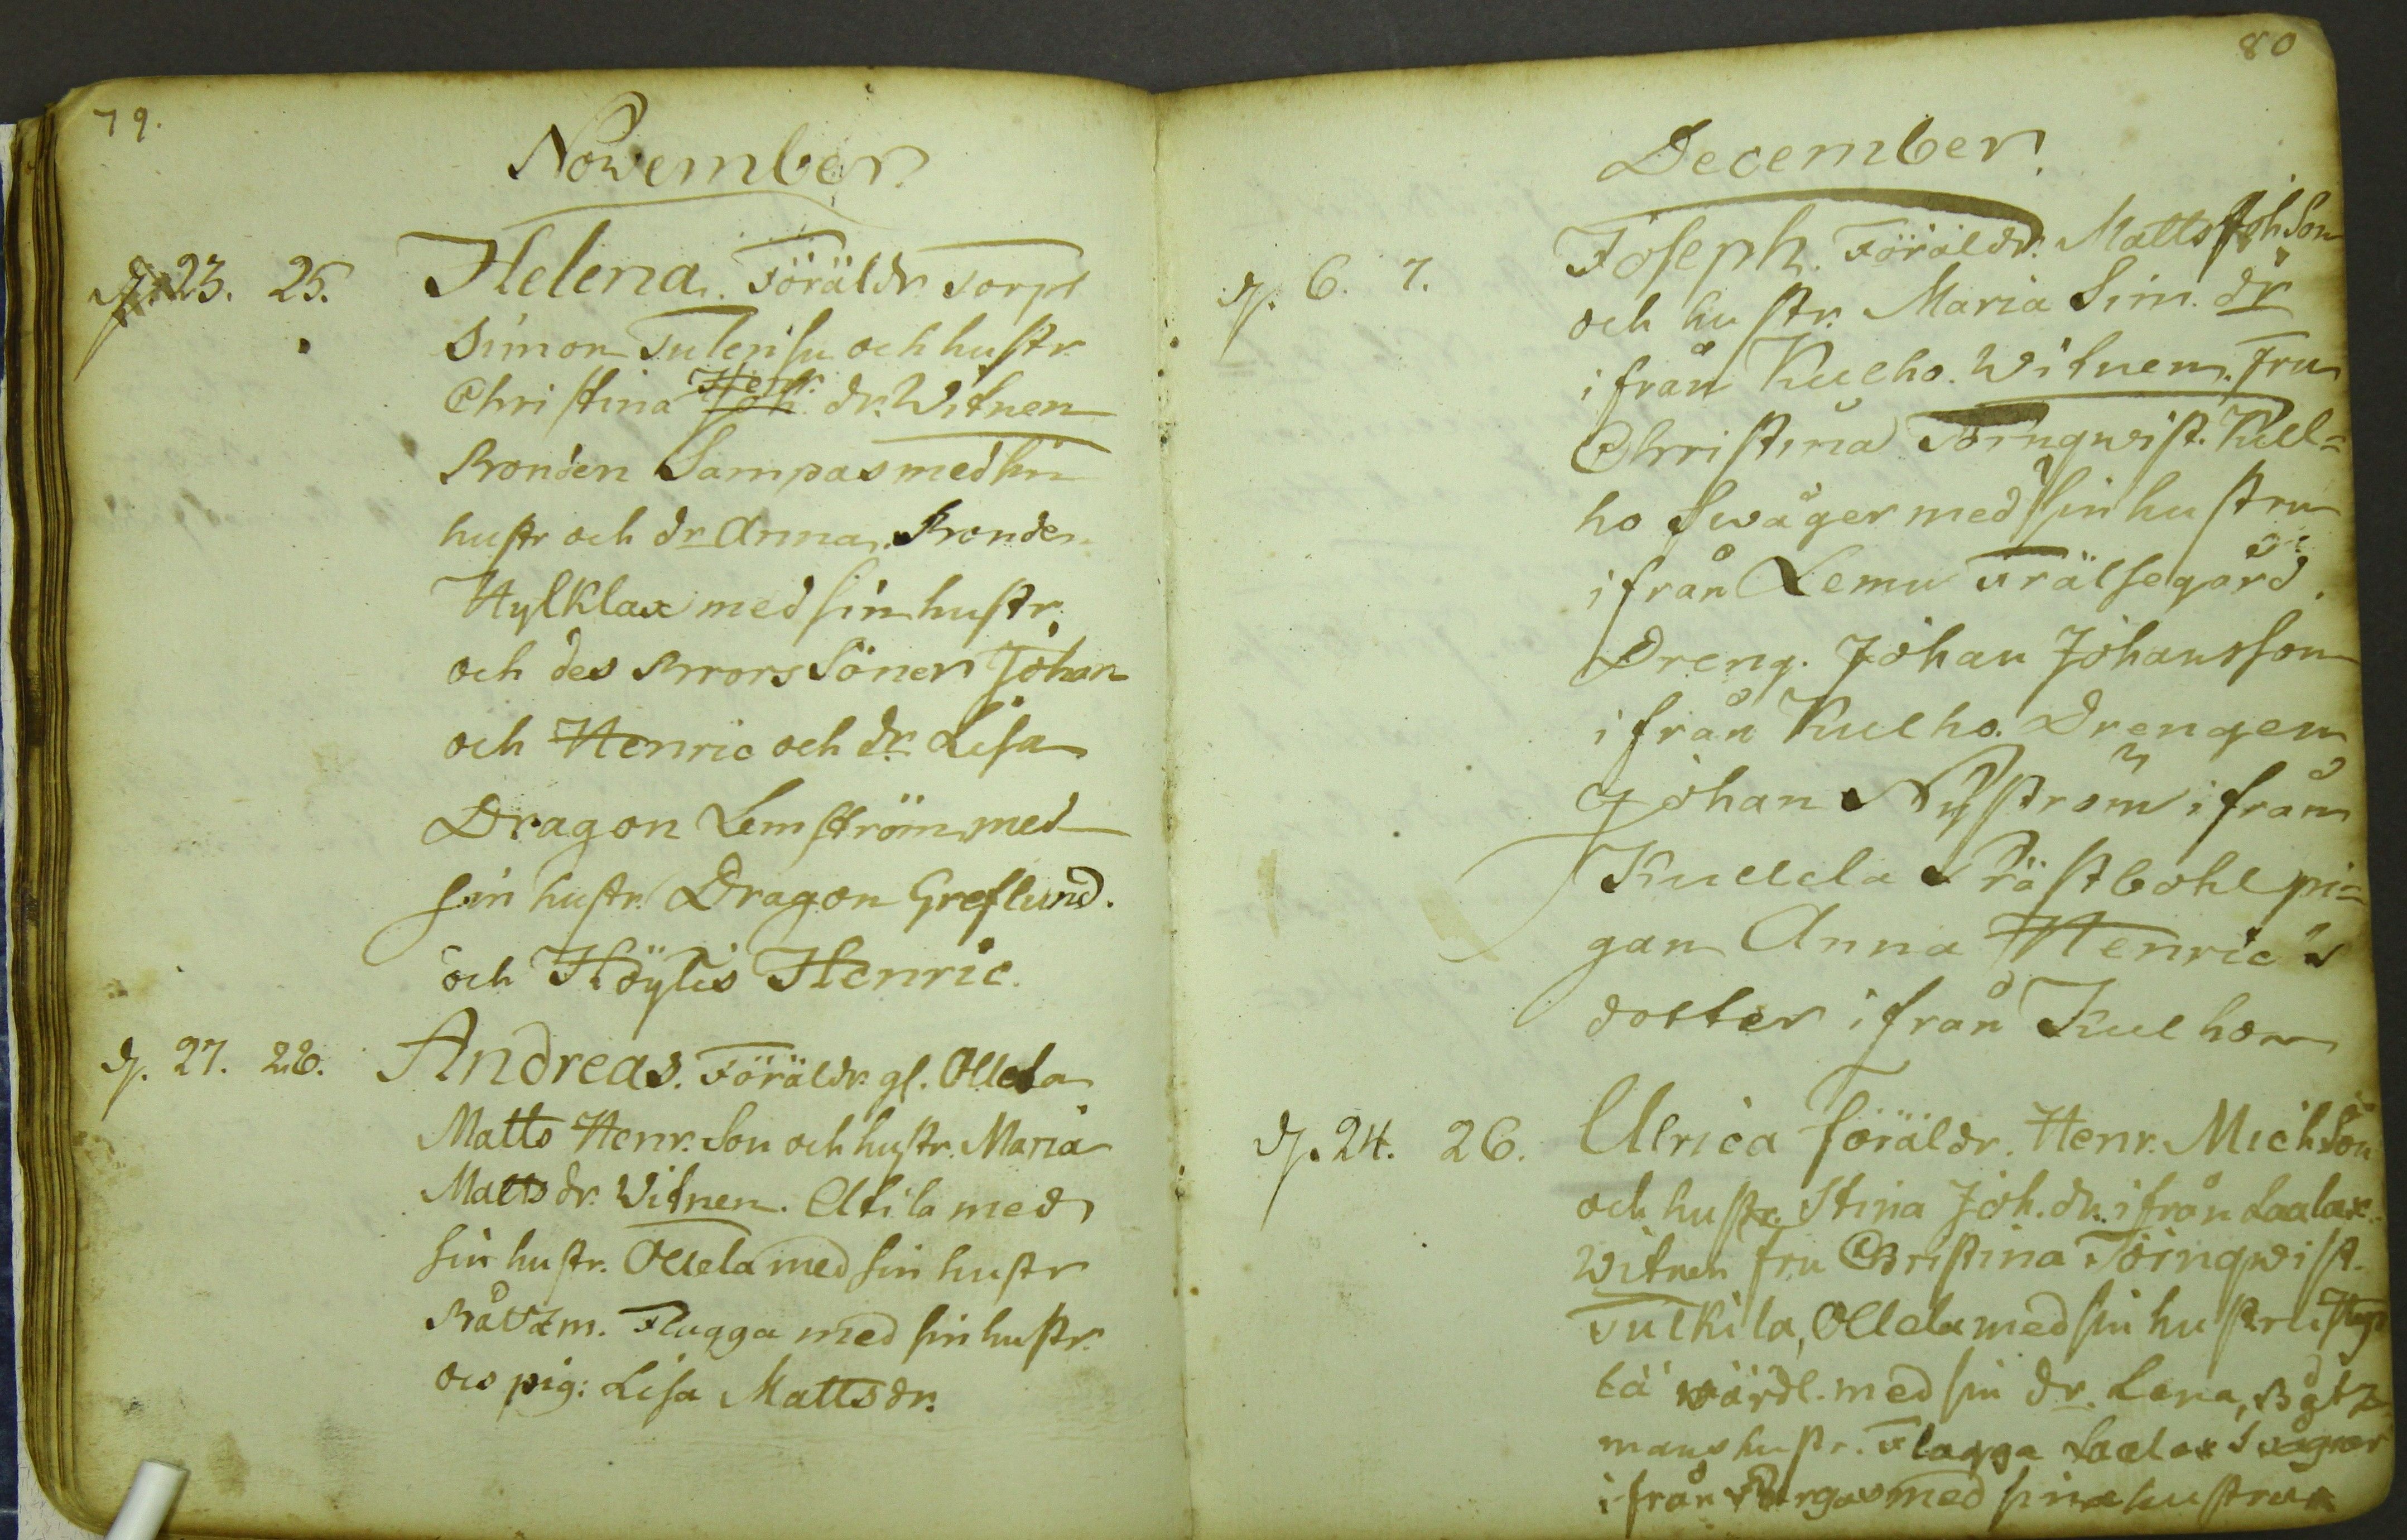 79.
November.
d. 23. 25. Helena. Föräldr. Torp
Simon och hustr.
Christina Henr. dr. Witnen
Bonden Sampas med sin
hustr och dr Anna. Bonden
Hylklax med sin hustr.
och des Brors Söner Johan
och Henric och dr. Lisa
Dragon Lemström med
sin hustr. Dragon Greflund.
och Höylis Henric.
d. 27. 28. Andreas. Föräldr. gl. Ollela
Matts Henr. Son och hustr. Maria
Matts dr. Witnen. Atila med
sin hustr. Ollela med sin hustr
Båtzm. Flagga med sin hustr.
och pig: Lisa Matts dr.
80
December.
d. 6. 7. Joseph. Föräldr. Matts Joh Son
och hustr. Maria Sim. dr
ifrån Kulho. Witnen. Fru
Christina Törnqwist. Kul=
ho Swåger med sin hustru
ifrån Lemu Frälsegård.
Dreng. Johan Johansson
ifrån Kulho. Drengen
Johan Nyström ifrån
Kullela Prästbohl pi=
gan Anna Henric's
dotter ifrån Kulho
d. 24. 26. Ulrica föräldr. Henr. Mich Son
och hustr. Stina Joh. dr. ifrån Laalax.
Witnen fru Christina Törnqwist.
Tulkila, Ollela med sin hustr.
wärdl. med sin dr. Lena, Båtz
mans hustr. Flagga Laalax Swågrar
ifrån Pargas med sina hustrur